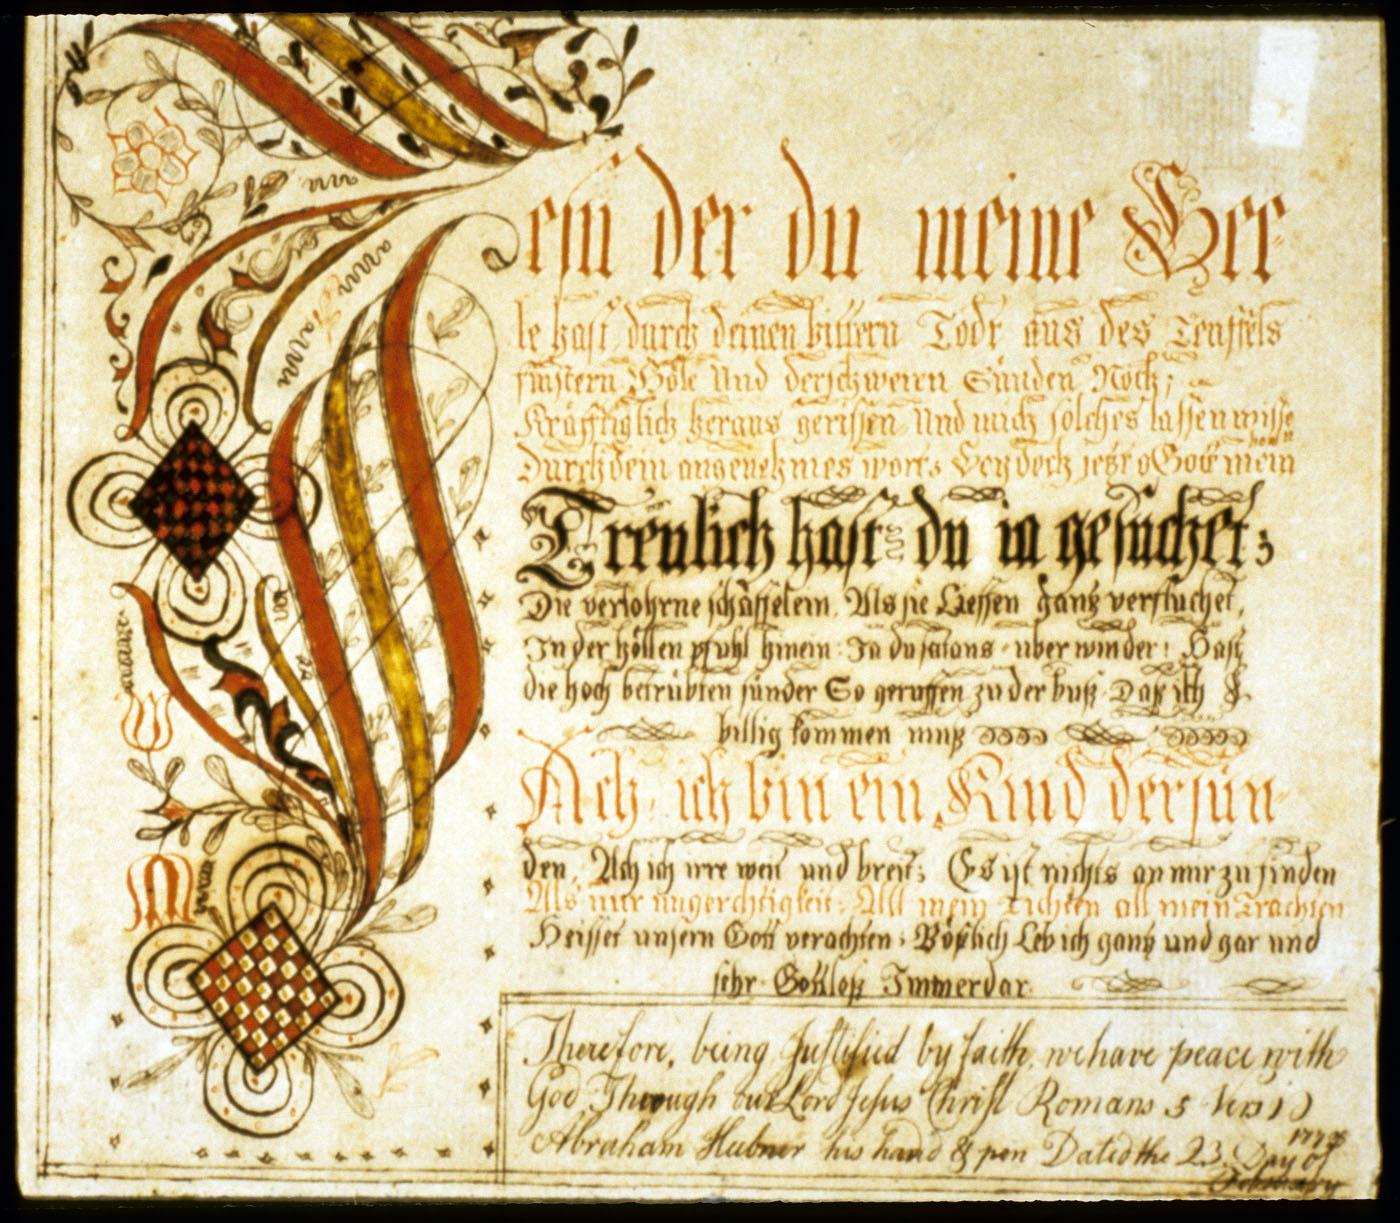 Jesu der du meine See-
le hast durch deinen bittern Todt aus des Teuffels
finstern Höle Und der schweren Sünden Noth;
Kräfftiglich heraus gerissen Und mich solches lassen wisse
Durch dein angenehmes wort; Sey doch jetzt o Gott mein
Treulich hast du ia gesuchet;
Die verlohrne schäffelein, Als sie Lieffen gantz verfluchet,
In der höllen pfuhl hinein: Ja du satans - uber winder! Hast
die hoch betrübten sünder So geruffen zu der buß Daß ich
billig kommen muß
Ach, ich bin ein Kind der sün-
den, Ach ich irre weit und breit; Es ist nichts an mir zu finden
Als nur ungerchtigkeit; All mein Tichten all mein Trachten
Heisset unsern Gott verachten; Bößlich Leb ich gantz und gar und
sehr Gottloß Immerdar
Therefore, being Justified by faith, we have peace with
God Through our Lord Jesus Christ Romans 5 Vers 1)
Abraham Hubner his hand & pen Dated the 23 Day of
February
W
M